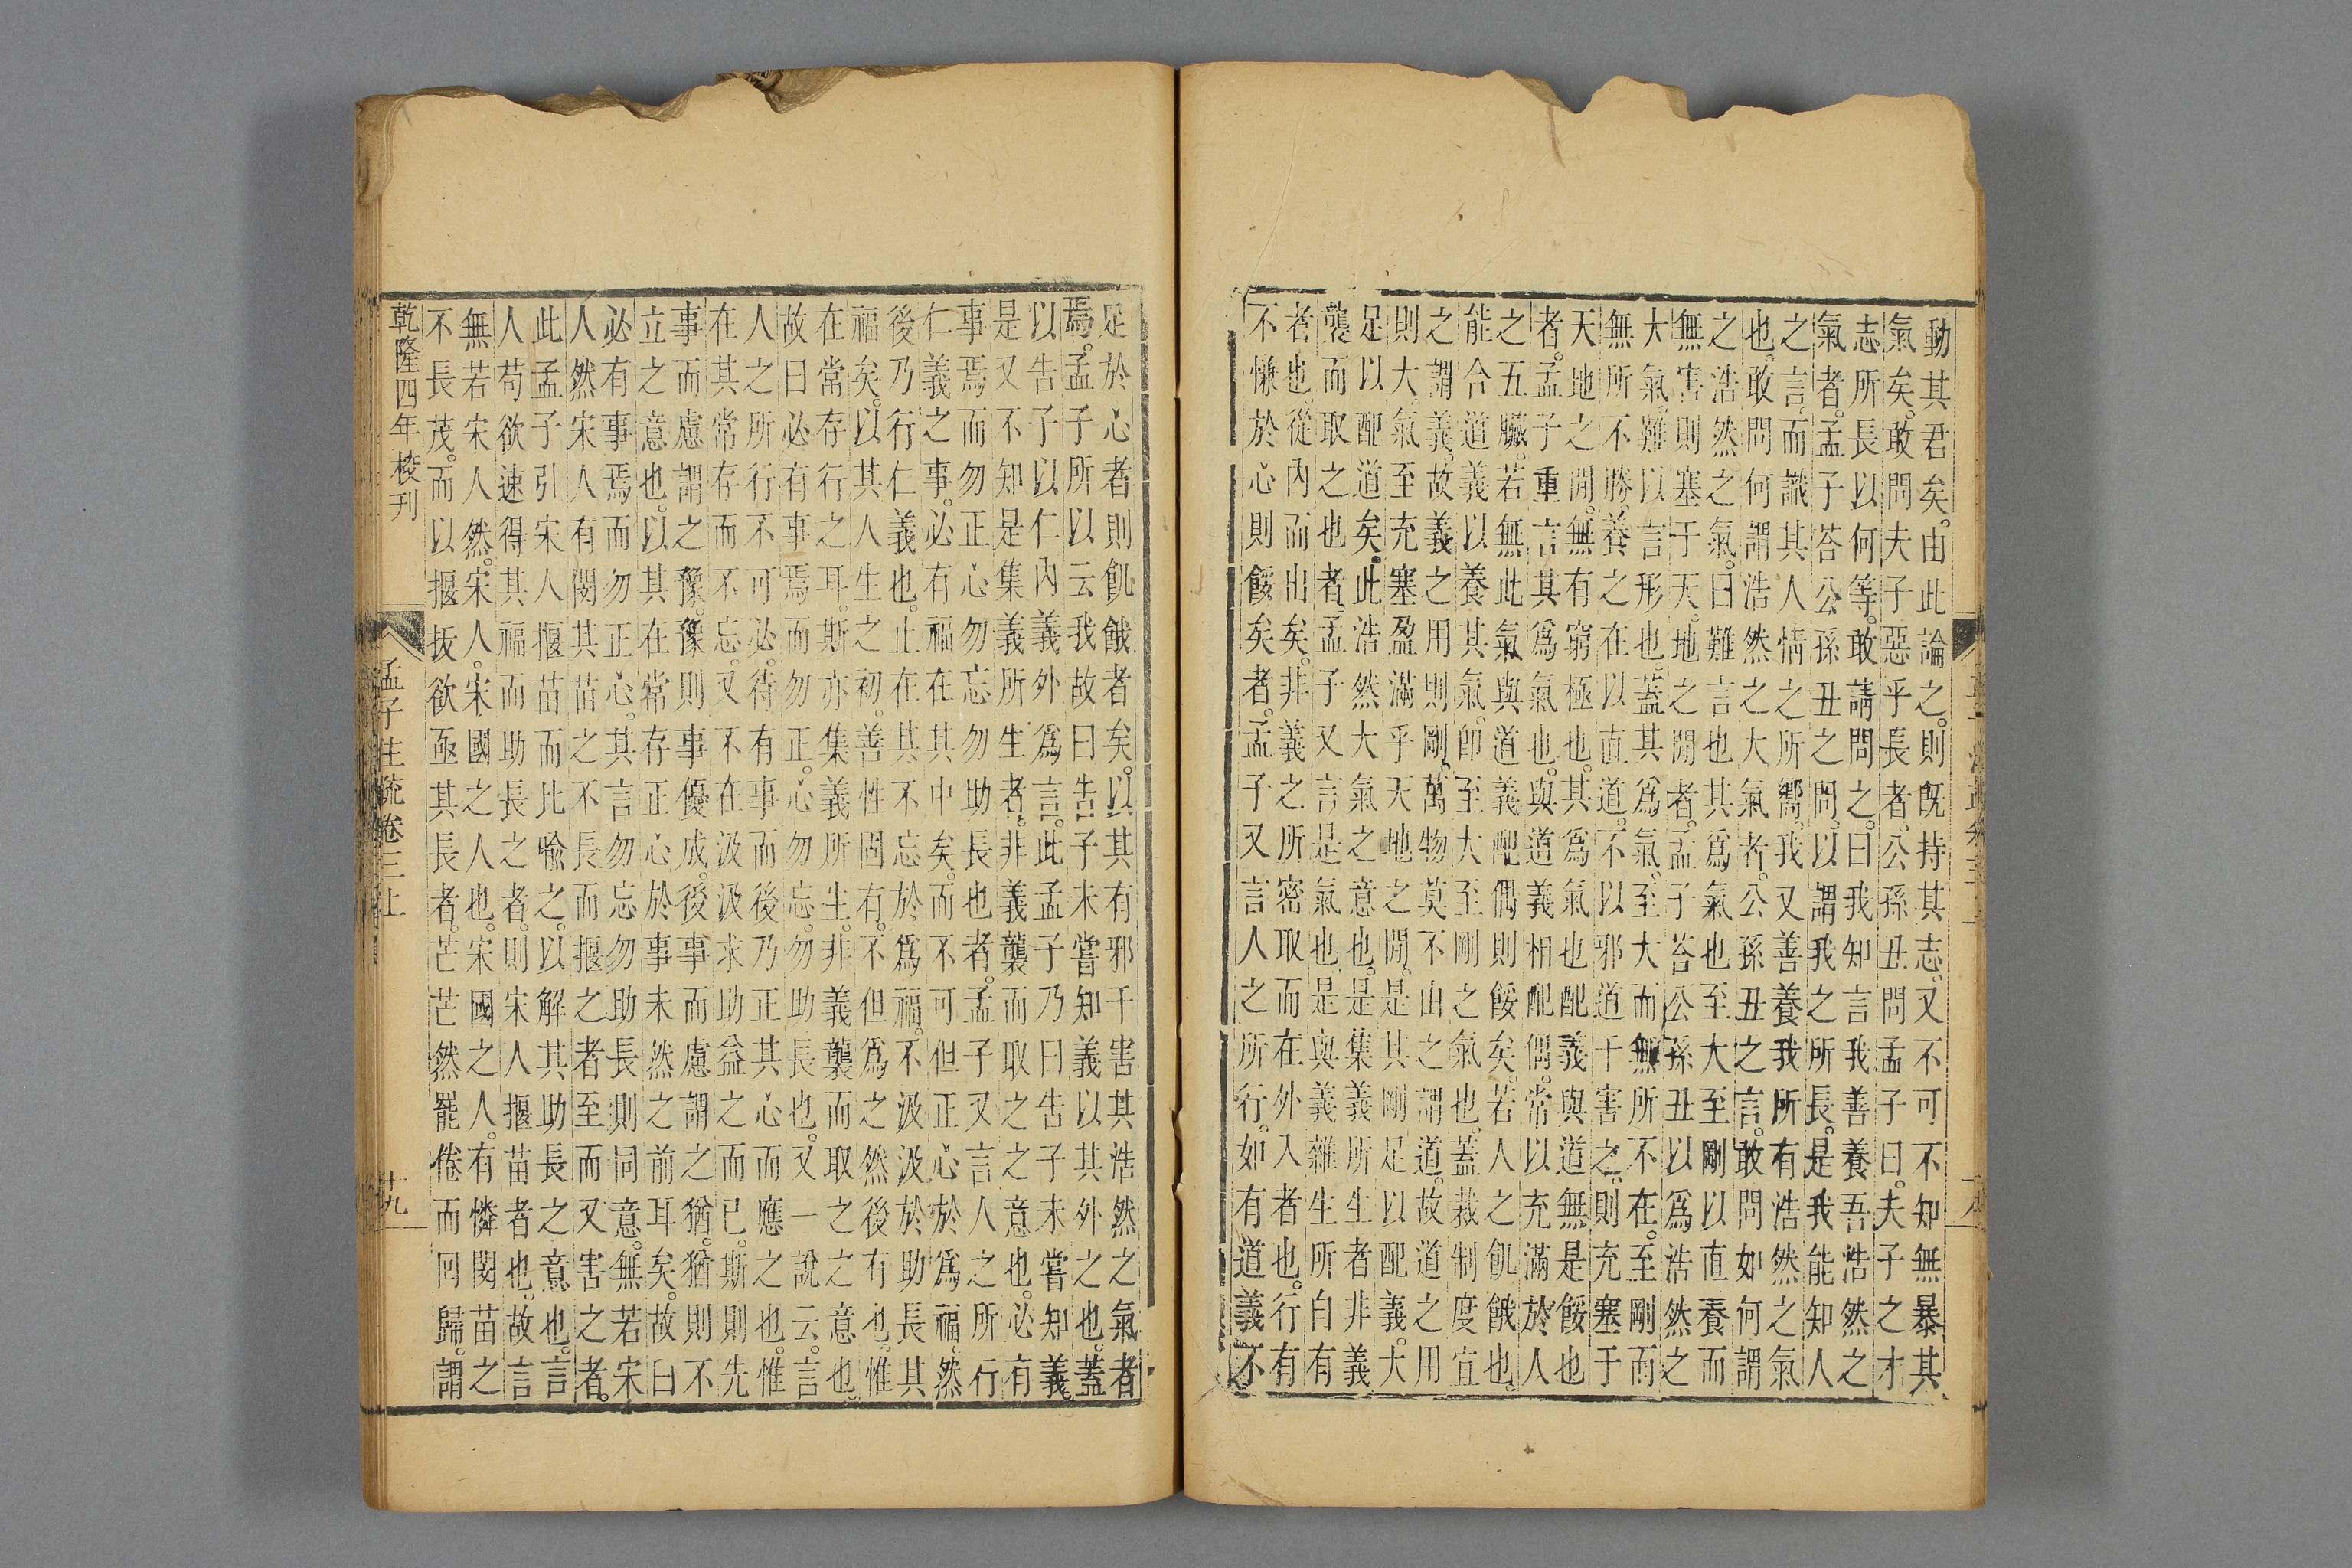 動其君矣。由此論之。則既持其志。又不可不知無暴其
氣矣。敢問夫子惡乎長者。公孫丑問孟子曰。夫子之才
志所長以何等。敢請問之。曰我知言我善養吾浩然之
氣者。孟子荅公孫丑之問。以謂我之所長。是我能知人
之言。而識其人情之所嚮。我又善養我所有浩然之氣
也。敢問何謂浩然之大氣者。公孫丑之言。敢問如何謂
之浩然之氣。曰難言也其爲氣也至大至剛以直養而
無害則塞于天。地之閒者。孟子荅公孫丑以爲浩然之
大氣。難以言形也。蓋其爲氣。至大而無所不在。至剛而
無所不勝。養之在以直道。不以邪道干害之。則充塞于
天地之閒。無有窮極也。其爲氣也配義與道無是餒也
者。孟子重言其爲氣也。與道義相配偶。常以充滿於人
之五臟。若無此氣與道義配偶則餒矣。若人之飢餓也。
能合道義以養其氣。卽至大至剛之氣也。蓋裁制度宜
之謂義。故義之用則剛。萬物莫不由之謂道。故道之用
則大氣至充塞盈滿乎天地之閒。是其剛足以配義。大
足以配道矣。此浩然大氣之意也。是集義所生者非義
襲而取之也者。孟子又言是氣也。是與義雜生所自有
者也。從內而出矣。非義之所密取而在外入者也。行有
不慊於心則餒矣者。孟子又言人之所行。如有道義不
足於心者則飢餓者矣。以其有邪干害其浩然之氣者
焉。孟子所以云我故曰告子未嘗知義以其外之也。蓋
以告子以仁內義外爲言。此孟子乃曰告子未嘗知義。
是又不知是集義所生者。非義襲而取之之意也。必有
事焉而勿正心勿忘勿助長也者。孟子又言人之所行
仁義之事。必有福在其中矣。而不可但正心於爲福。然
後乃行仁義也。止在其不忘於爲福。不汲汲於助長其
福矣。以其人生之初。善性固有。不但爲之然後有也。惟
在常存行之耳。斯亦集義所生。非義襲而取之之意也。
故曰必有事焉而勿正。心勿忘。勿助長也。又一說云。言
人之所行不可必。待有事而後乃正其心而應之也。惟
在其常存而不忘。又不在汲汲求助益之而已。斯則先
事而慮謂之豫。豫則事優成。後事而慮謂之猶。猶則不
立之意也。以其在常存正心於事未然之前耳矣。故曰
必有事焉而勿正心。其言勿忘勿助長則同意。無若宋
人然宋人有閔其苗之不長而揠之者至而又害之者。
此孟子引宋人揠苗而比喻之。以解其助長之意也。言
人苟欲速得其福而助長之者。則宋人揠苗者也。故言
無若宋人然。宋人。宋國之人也。宋國之人。有憐閔苗之
不長茂。而以揠拔欲亟其長者。芒芒然罷倦而回歸。謂
乾隆四年校刊
孟子注疏卷三上
十九